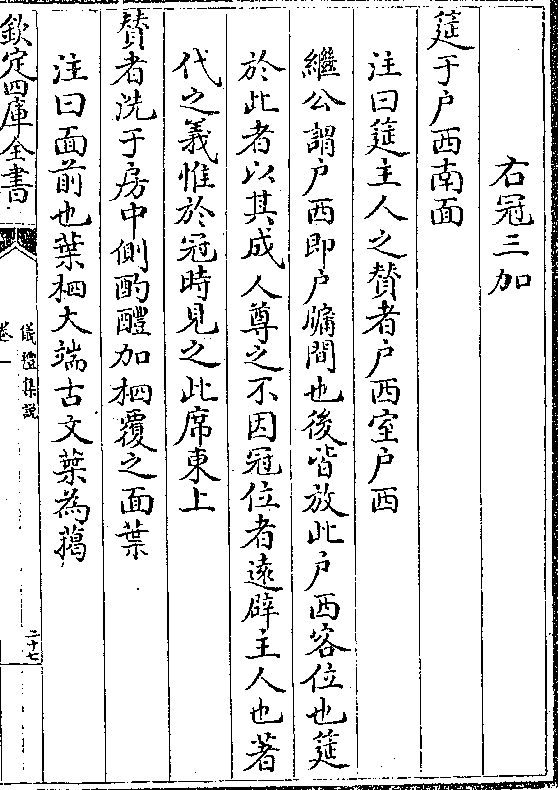 右冠三加
筵于户西南面
注曰筵主人之賛者户西室户西
繼公謂户西即户牖間也後皆放此户西客位也筵
於此者以其成人尊之不因冠位者遠辟主人也著
代之義惟於冠時見之此席東上
賛者洗于房中側酌醴加柶覆之面葉
注曰面前也葉柶大端古文葉為擖
欽定四庫全書
儀禮集說
卷一
二十七